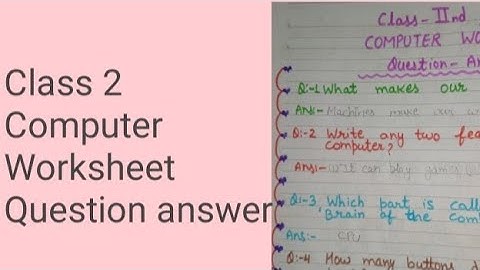 Class 2
Computer
Worksheet
Question answer
Class- IInd
COMPUTER WO
Question- An
Q:-1 What makes our
Ans:- Machines make our w
Q:-2 Write any two fea
computer?
Ans:- can play games
Q:-3, Which part is call
Brain of the com
Ans:- CPU
Q:-4 How many buttons